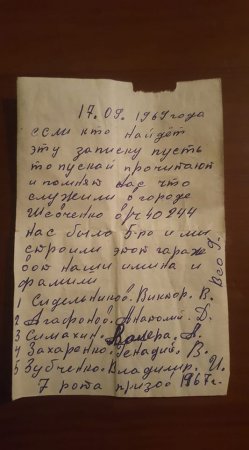 17.09.1969 года
если кто найдёт
эту записку пусть
то пускай прочитают
и помнят нас что
служили в городе
в/ч 40944
нас было 5-ро и мы
строили этот гараж
вот наши имина и
фамилии
1 Сидельников. Виктор. В.
2 Агафонов. Анатолий. Д.
3 Симахин. Валера. А.
4 Захаренко. Генадий. В.
5 Зубченко. Владимир. И.
7 рота призов 1967 г.